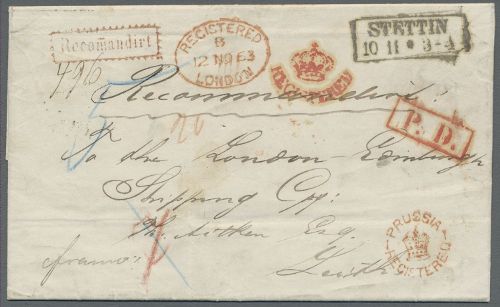 Recomandirt
REGISTERED
B
12 NO 63
LONDON
REGISTERED
STETTIN
10 11 * 3-4
496
Recommandirt
P. D.
To the London-Edinburgh
Shipping Cpy:
Aitken Esq
franco
Leith
PRUSSIA
REGISTERED